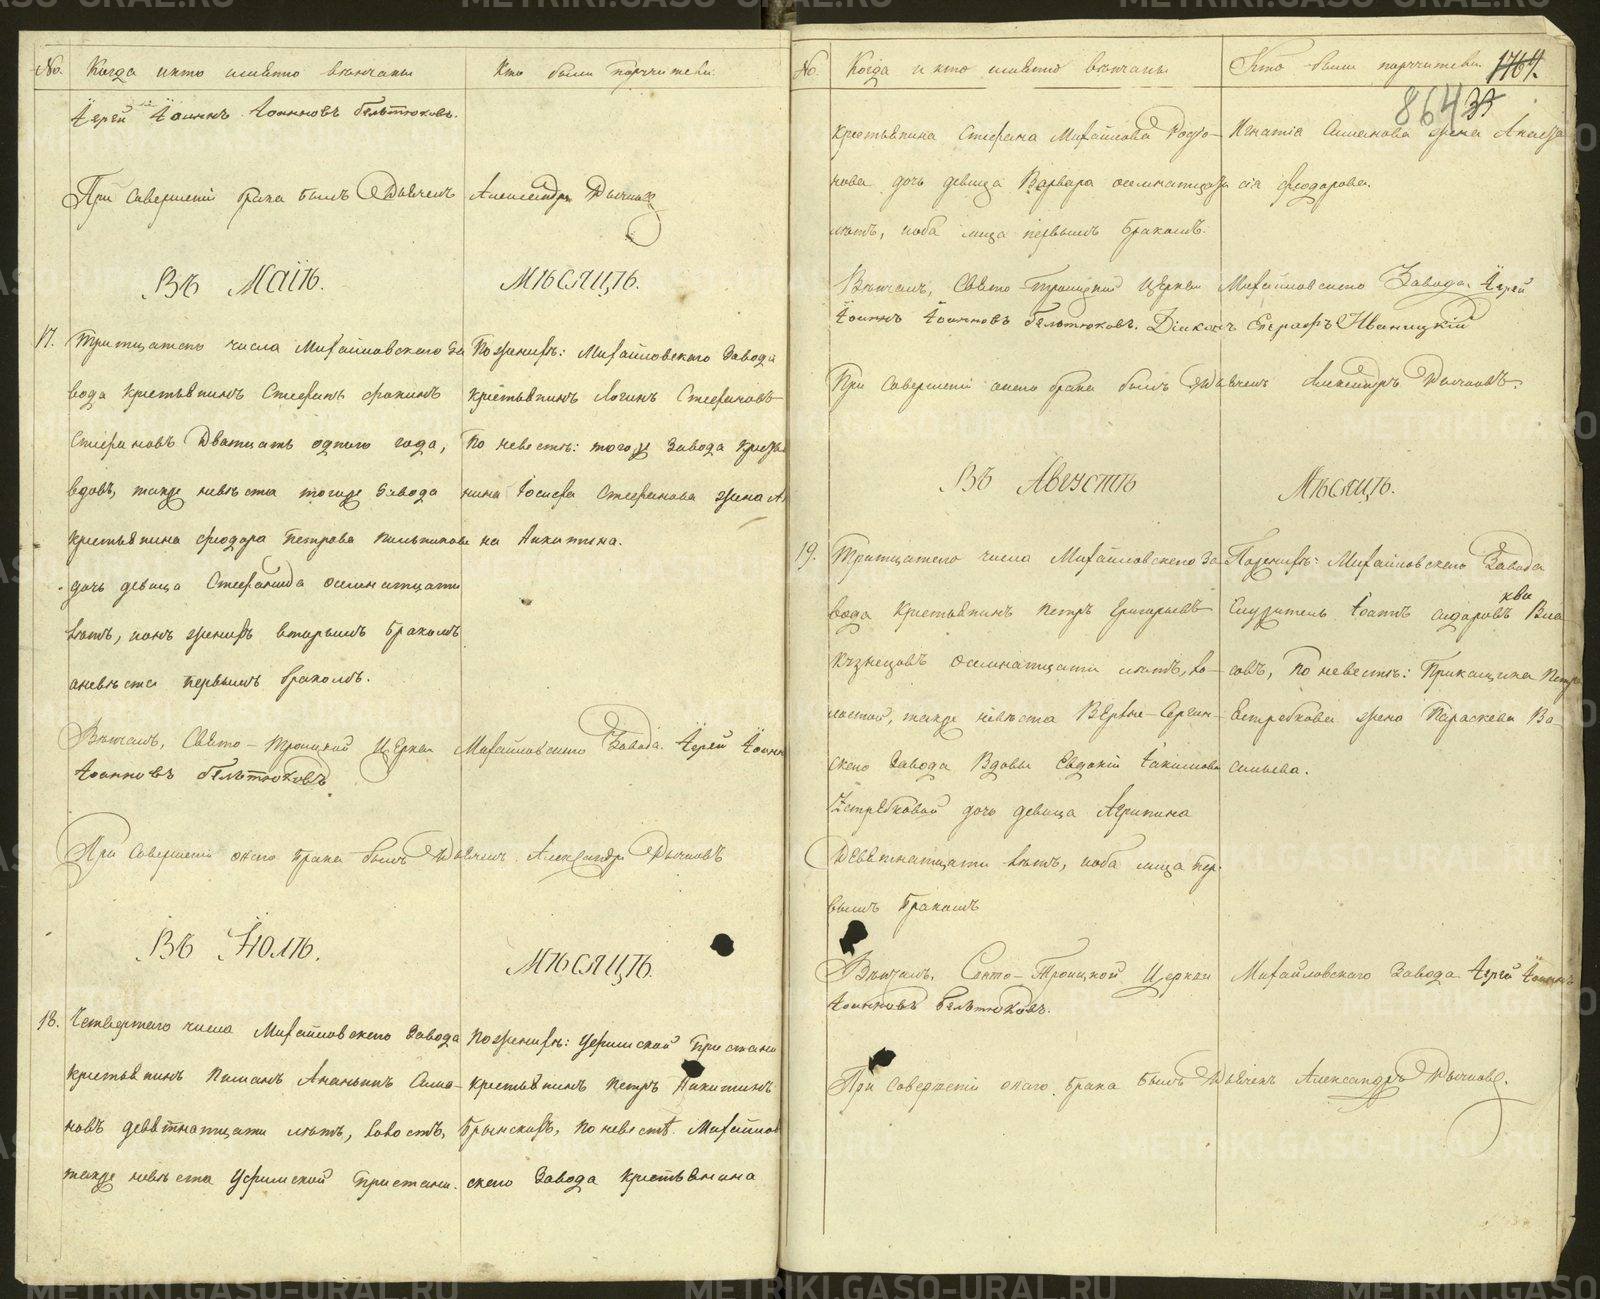 №. Когда и кто именно венчаны Кто были поручители.
Іерей Іоаннъ Іоанновъ Бѣльтюковъ.
При совершеніи брака былъ Дьячекъ Александръ Дычковъ
Въ Маіѣ. Мѣсяцѣ.
17. Тритцатого числа Михайловского За
вода крестьянинъ Стефанъ Фокинъ
Стефановъ Дватцать одного года,
вдовъ, такде невѣста тогоде завода
крестьянина Феодора Петрова
дочь девица Стефанида осемнатцати
лѣтъ, онъ женихъ вторымъ бракомъ
а невѣста первымъ бракомъ.
По женихѣ: Михайловского завода
крестьянинъ Логинъ Стефановъ
По невестѣ: того завода крестья
нина Іосифа Стефанова жена А
на Никитина.
Вѣнчалъ, Свято-Троицкой Церкви Михайловского Завода. Іерей Іоаннъ
Іоанновъ Бѣльтюковъ.
При совершеніи оного брака былъ Дьячекъ Александръ Дычковъ
Въ Іюлѣ. Мѣсяцѣ.
18. Четвертого числа Михайловского завода
крестьянинъ Ананьинъ Сима-
новъ девятнатцати лѣтъ, холостъ,
такде невѣста Уфимской пристани.
По женихѣ: Уфимской Пристани
крестьянинъ Петръ Никитинъ
по невестѣ. Михайлов
ского Завода крестьянина
№. Когда и кто именно венчаны Кто были поручители. 1764.
864 33
крестьянина Стефана Михайлова Родіо-
нова дочь девица Варвара осемнатцати
лѣтъ, иоба лица первымъ бракомъ.
Игнатіа Симанова жена Анаста
сіа Феодорова.
Вѣнчалъ, Свято-Троицкой Церкви Михайловского Завода. Іерей
Іоаннъ Іоанновъ Бѣльтюковъ. Діаконъ Иваницкій
При совершеніи онего брака былъ Дьячекъ Александръ Дычковъ.
Въ Августѣ Мѣсяцѣ.
19. Тритцатого числа Михайловского За
вода крестьянинъ Петръ Григорьевъ
Кузнецовъ осемнатцати лѣтъ, хо-
лостой, такде невѣста Верхне-Сергин-
ского завода Вдовы Евдокіи Іакимовы
Ястребковой дочь девица Агрипина
Девятнатцати лѣтъ, иоба лица пер-
вымъ бракомъ
По женихѣ: Михайловского Завода
Служитель Іоаннъ Сидоровъ Вла
совъ, по невестѣ: Прикащика Петра
Естребкова жена Параскева Ва-
сильева.
Вѣнчалъ, Свято-Троицкой Церкви Михайловского Завода Іерей Іоаннъ
Іоанновъ Бѣльтюковъ.
При совершеніи оного брака былъ Дьячекъ Александръ Дычковъ.
METRIKI.GASO-URAL.RU